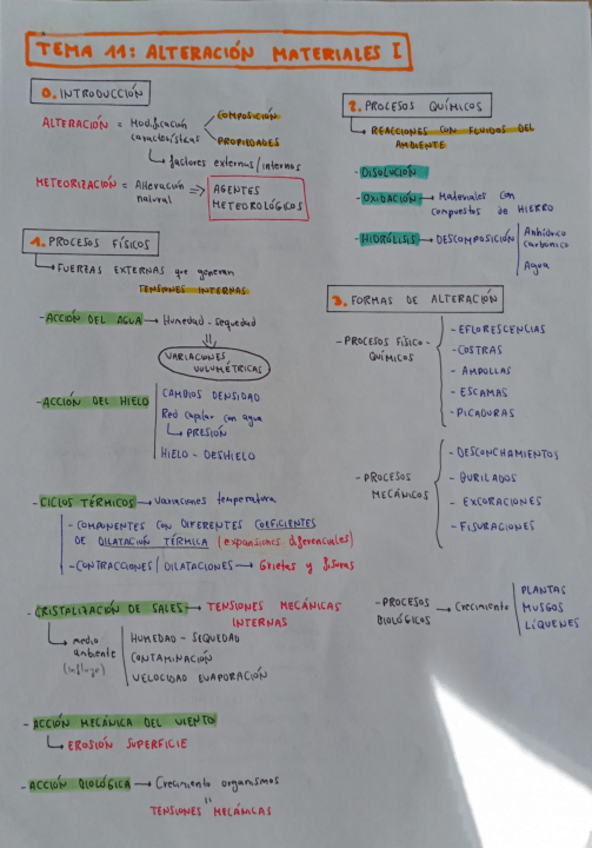 TEMA 11: ALTERACIÓN MATERIALES I
0. INTRODUCCIÓN
ALTERACIÓN = Modificación características
COMPOSICIÓN
PROPIEDADES
factores externos/internos
METEORIZACIÓN = Alteración natural => AGENTES METEOROLÓGICOS
1. PROCESOS FÍSICOS
FUERZAS EXTERNAS que generan
TENSIONES INTERNAS
- ACCIÓN DEL AGUA → Humedad - sequedad
VARIACIONES
VOLUMÉTRICAS
- ACCIÓN DEL HIELO
CAMBIOS DENSIDAD
Red capilar con agua
PRESIÓN
HIELO - DESHIELO
- CICLOS TÉRMICOS → Variaciones temperatura
- COMPONENTES CON DIFERENTES COEFICIENTES
DE DILATACIÓN TÉRMICA (expansiones diferenciales)
- CONTRACCIONES/DILATACIONES → Grietas y fisuras
- CRISTALIZACIÓN DE SALES → TENSIONES MECÁNICAS
INTERNAS
medio
ambiente
(influye)
HUMEDAD - SEQUEDAD
CONTAMINACIÓN
VELOCIDAD EVAPORACIÓN
- ACCIÓN MECÁNICA DEL VIENTO
EROSIÓN SUPERFICIE
- ACCIÓN BIOLÓGICA → Crecimiento organismos
"
TENSIONES MECÁNICAS
2. PROCESOS QUÍMICOS
REACCIONES CON FLUIDOS DEL
AMBIENTE
- DISOLUCIÓN
- OXIDACIÓN → Materiales con
compuestos de HIERRO
- HIDRÓLISIS → DESCOMPOSICIÓN
Anhídrico
carbónico
Agua
3. FORMAS DE ALTERACIÓN
- PROCESOS FÍSICO-
QUÍMICOS
- EFLORESCENCIAS
- COSTRAS
- AMPOLLAS
- ESCAMAS
- PICADURAS
- PROCESOS
MECÁNICOS
- DESCONCHAMIENTOS
- BURILADOS
- EXCORACIONES
- FISURACIONES
- PROCESOS
BIOLÓGICOS → Crecimiento
PLANTAS
MUSGOS
LÍQUENES